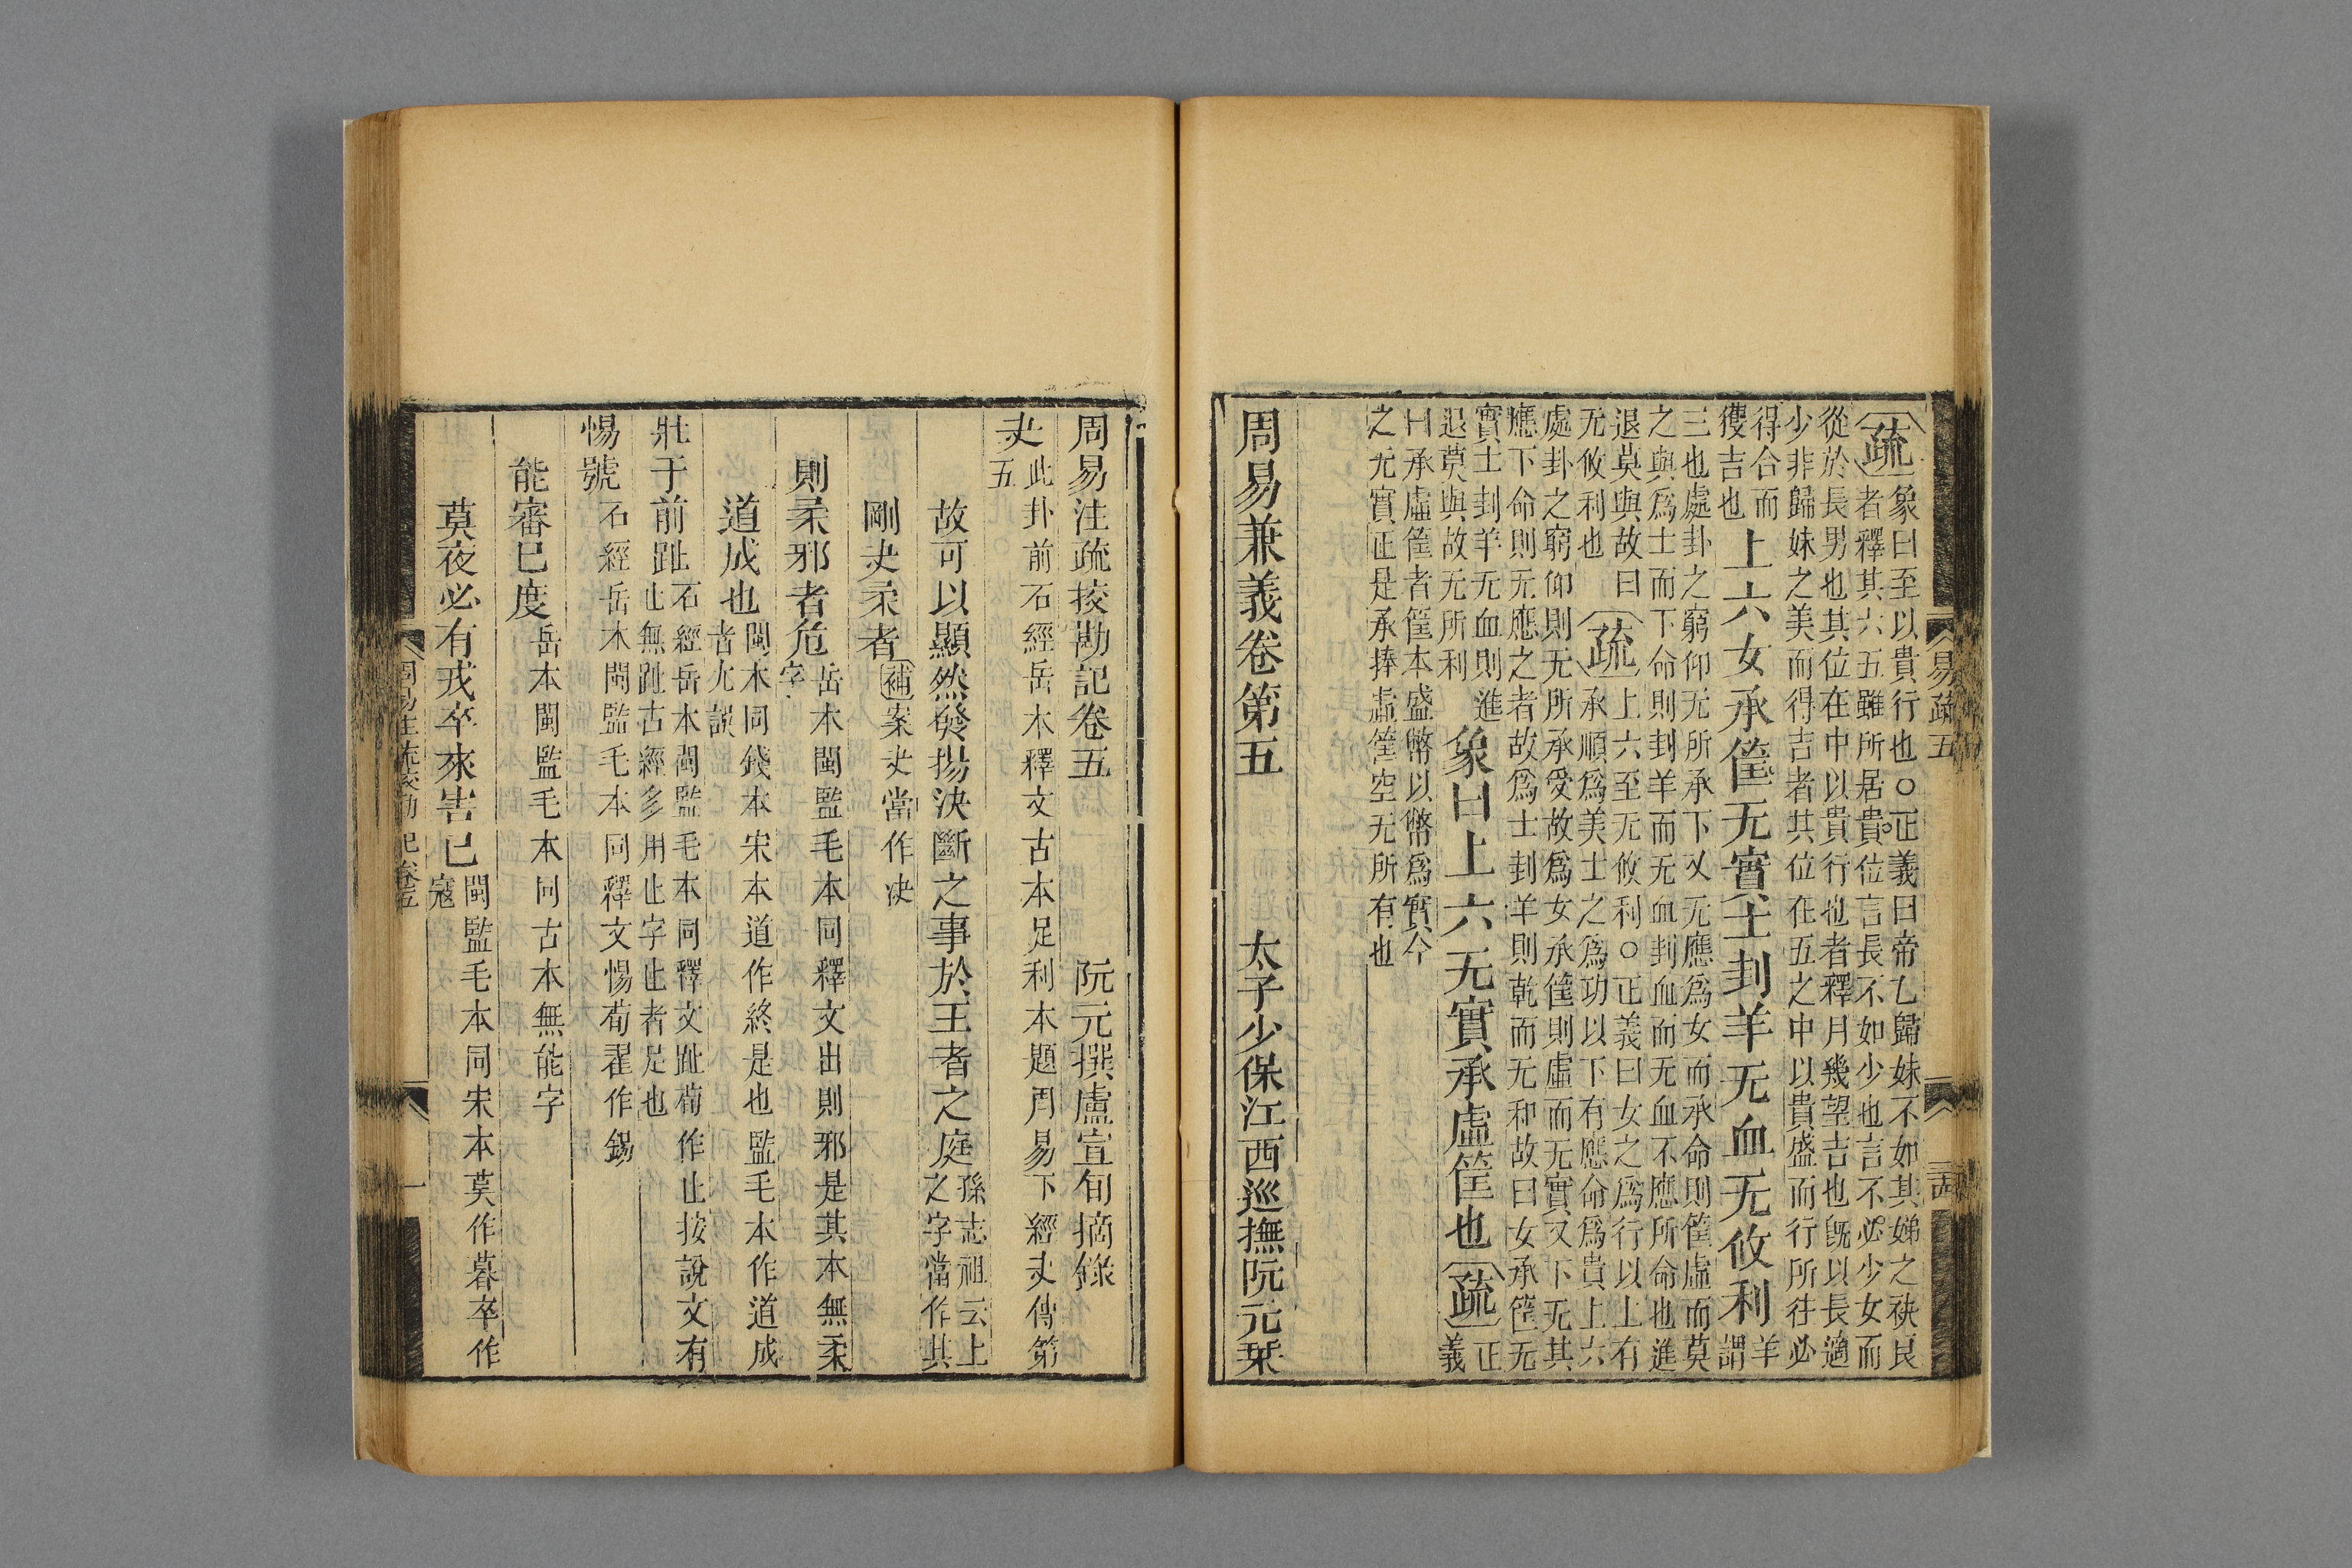 易疏五
疏 象曰至以貴行也○正義曰帝乙歸妹不如其娣之袂良
者釋其六五雖所居貴位言長不如少也言不必少女而
從於長男也其位在中以貴行也者釋月幾望吉也既以長適
少非歸妹之美而得吉者其位在五之中以貴盛而行所往必
得合而
獲吉也
上六女承筐无實士刲羊无血无攸利
羊
謂
三也處卦之窮仰无所承下又无應爲女而承命則筐虛而莫
之與爲士而下命則刲羊而无血刲血而无血不應所命也進
退莫與故曰
无攸利也
疏
上六至无攸利○正義曰女之爲行以上有
承順爲美士之爲功以下有應命爲貴上六
處卦之窮仰則无所承受故爲女承筐則虛而无實又下无其
應下命則无應之者故爲士刲羊則乾而无和故曰女承筐无
實士刲羊无血則進
退莫與故无所利
象曰上六无實承虛筐也
疏
正
義
曰承虛筐者筐本盛幣以幣爲實今
之无實正是承捧虛筐空无所有也
周易兼義卷第五 太子少保江西巡撫阮元栞
周易注疏挍勘記卷五 阮元撰盧宣旬摘錄
夬
此卦前石經岳本釋文古本足利本題周易下經夬傳第
五
故可以顯然發揚決斷之事於王者之庭
孫志祖云上
之字當作其
剛夬柔者
補 案夬當作決
則柔邪者危
岳本閩監毛本同釋文出則邪是其本無柔
字
道成也
閩本同錢本宋本道作終是也監毛本作道成
者尤誤
壯于前趾
石經岳本閩監毛本同釋文趾荀作止按說文有
止無趾古經多用止字止者足也
惕號
石經岳本閩監毛本同釋文惕荀翟作錫
能審已度
岳本閩監毛本同古本無能字
莫夜必有戎卒來害己
閩監毛本同宋本莫作暮卒作
寇
周易注疏挍勘記卷五
一